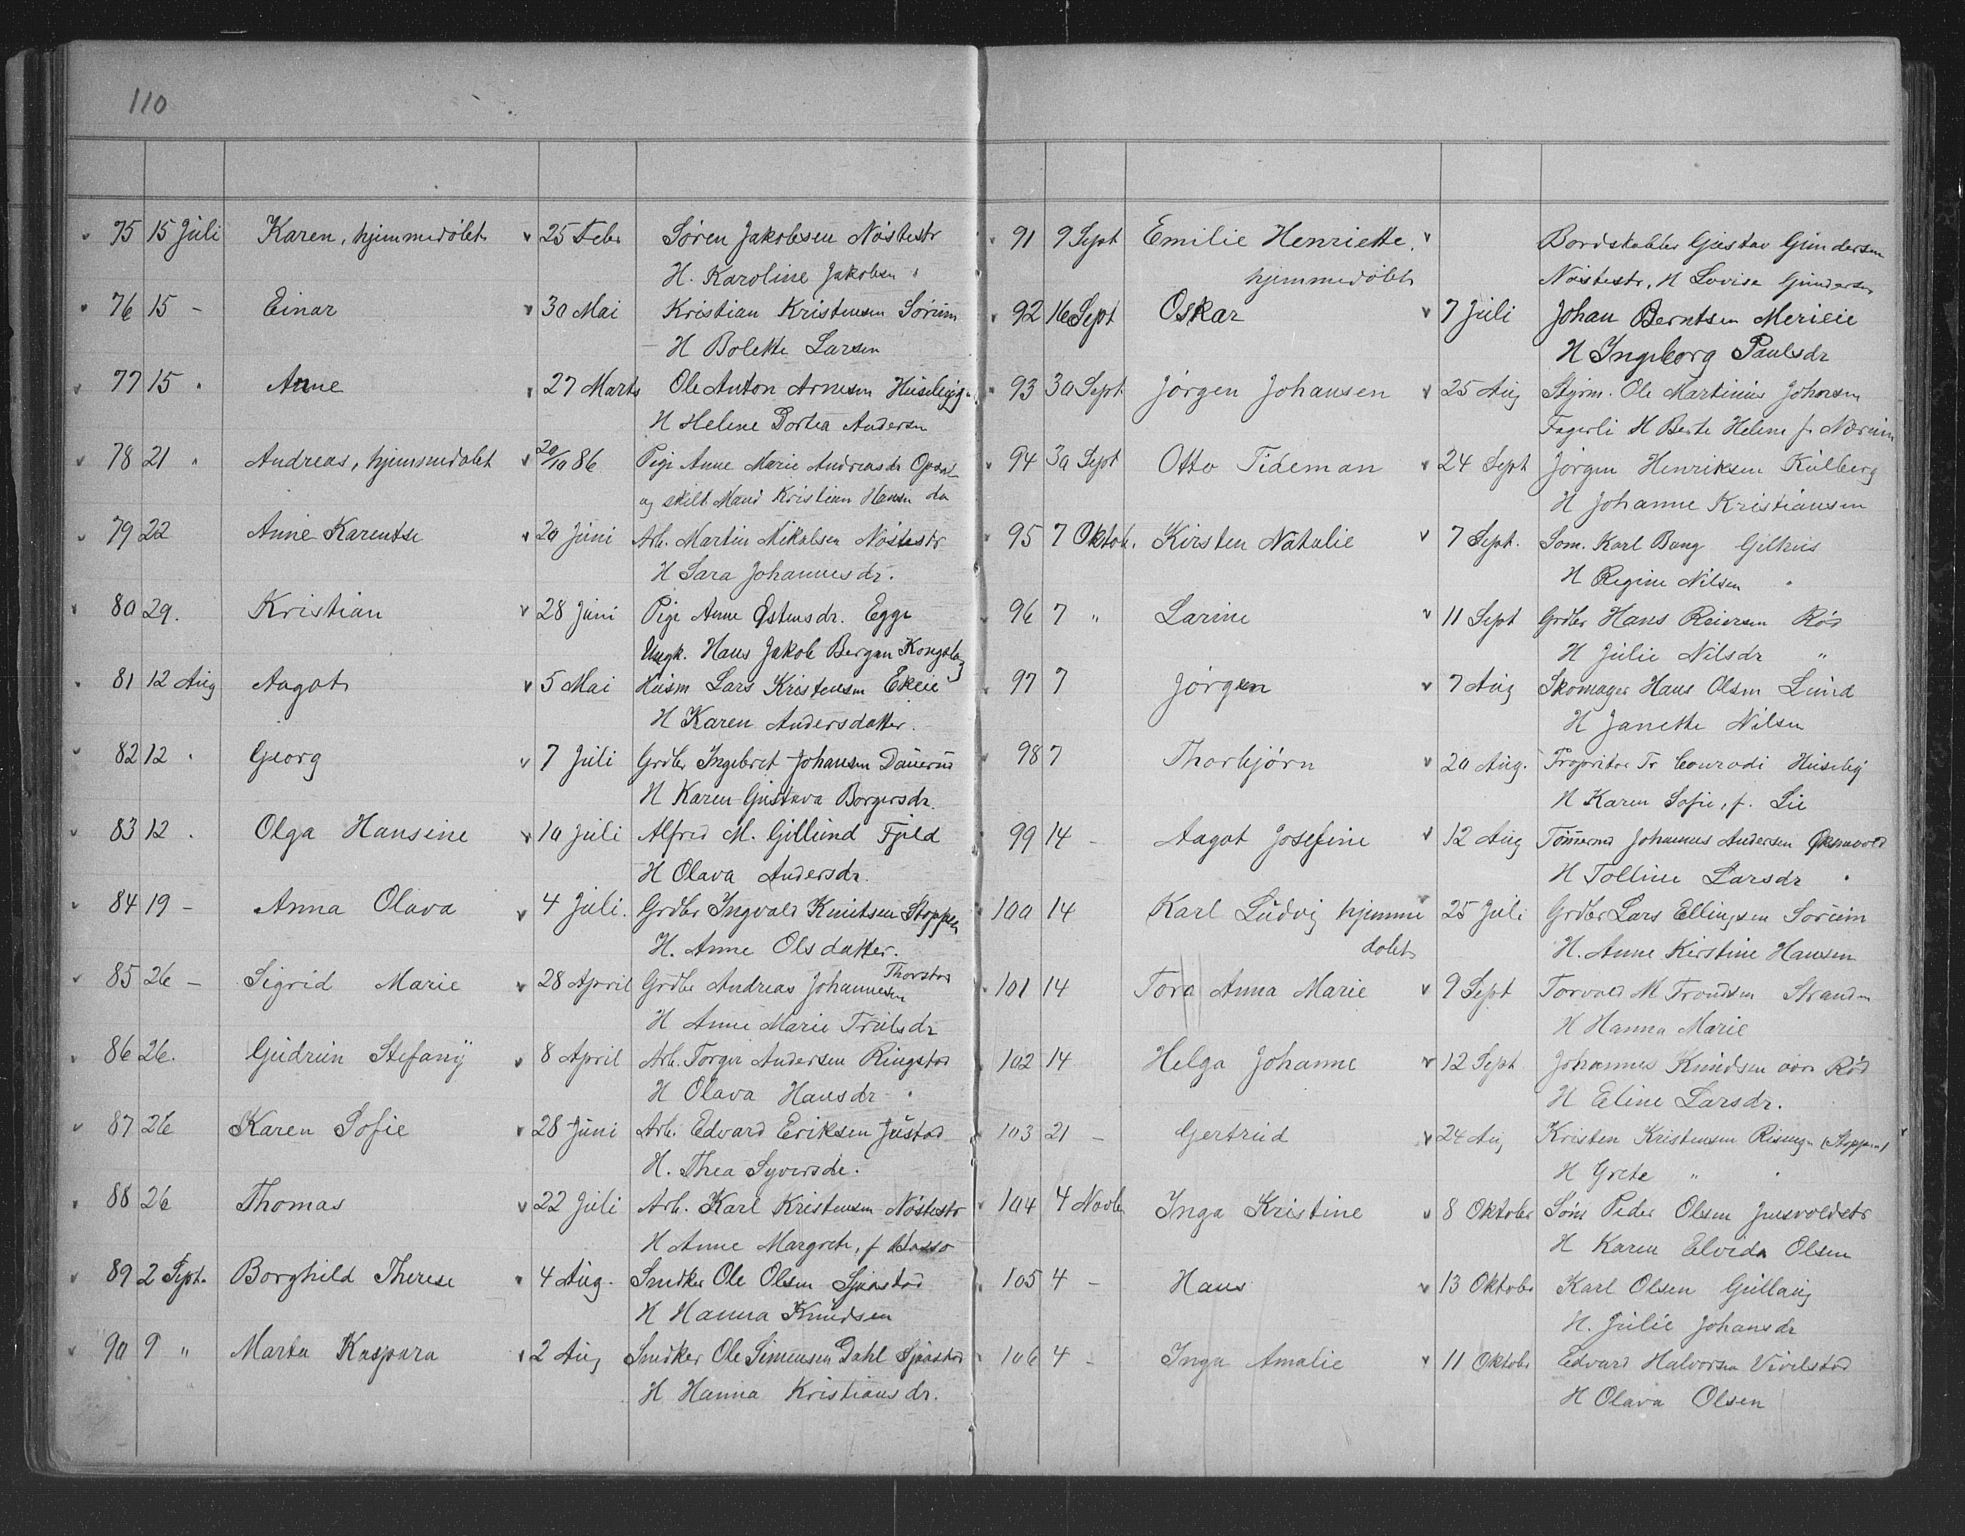 110
75 15 Juli Karen, hjemmedøbt 25 Febr Søren Jakobsen Nøstestr
H. Karoline Jakobsen "
76 15 - Einar 30 Mai Kristian Kristensen Sørum
H Bolette Larsen
77 15 " Anne 27 Marts Ole Anton Arnesen
H Helene Dortea Andersen
78 21 " Andreas, hjemmedøbt 20/10 86 Pige Anne Marie Andreasdr
og skilt Mand Kristian Hansen do
79 22 Anne Karentse 20 Juni Arb. Martin Nikolsen Nøstestr
H Sara Johannesdr.
80 29. Kristian 28 Juni Pige Anne Østensdr. Egge
Ungk. Hans Jakob Bergan Kongsberg
81 12 Aug Aagot 5 Mai Husm Lars Kristensen Ekeie
H Karen Andersdatter.
82 12 " Georg 7 Juli Grdbr Ingebret Johansen Dauerud
H Karen Gustava Borgersdr.
83 12 " Olga Hansine 10 Juli Alfred M. Gillund Fjeld
H Olava Andersdr.
84 19 - Anna Olava 4 Juli. Grdbr Ingvald Knutsen Stoppen
H. Anne Olsdatter.
85 26 - Sigrid Marie 28 April Grdbr Andreas Johannesen Thorstad
H Anne Marie Trulsdr
86 26. Gudrun Stefany 8 April Arb. Torger Andersen Ringstad
H Olava Hansdr "
87 26 Karen Sofie 28 Juni Arb. Edvard Eriksen Justad
H. Thea Syversdr.
88 26 Thomas 22 Juli Arb. Karl Kristensen Nøstestr
H Anne Margrete, f Basso
89 2 Sept. Borghild Therese 4 Aug. Snedker Ole Olsen Sjaastad
H Hanna Knudsen
90 9 " Marta Kaspara 2 Aug Snedker Ole Simensen Dahl Sjaastad
H Hanna Kristiansdr.
91 9 Sept Emilie Henriette, Bordskabler Gustav Gundersen
hjemmedøbt Nøstestr, H Lovise Gundersen
92 16 Sept Oskar 7 Juli Johan Berntsen Merieie
H Ingeborg Paulsdr
93 30 Sept Jørgen Johansen 25 Aug Styrm. Ole Martinius Johansen
Fagerli H Berte Helene f Nærum
94 30 Sept Otto Tideman 24 Sept Jørgen Henriksen Kulberg
H Johanne Kristiansen
95 7 Oktob. Kirsten Natalie 7 Sept. Søm. Karl Bang Gilhus
H Regine Nilsen "
96 7 " Larine 11 Sept Grdbr Hans Reiersen Rød
H Julie Nilsdr "
97 7 Jørgen 7 Aug Skomager Hans Olsen Lund
H Janette Nilsen
98 7 Thorbjørn 20 Aug. Propritær Fr Conradi Huseby
H Karen Sofie, f. Lie
99 14 - Aagot Josefine 12 Aug Tømmermd Johannes Andersen
H Tolline Larsdr "
100 14 Karl Ludvig hjemme 25 Juli Grdbr Lars Ellingsen Sørum
døbt H. Anne Kirstine Hansen
101 14 Tora Anna Marie 9 Sept Torvald M Trondsen Stranden
H Hanna Marie
102 14 Helga Johanne 12 Sept Johannes Knudsen øvre Rød
H Eline Larsdr.
103 21 - Gertrud 24 Aug Kristen Kristensen (Stoppen)
H Grete " "
104 4 Novb Inga Kristine 8 Oktobr Søm Peder Olsen
H Karen Elvida Olsen
105 4 - Hans 13 Oktobr Karl Olsen Gullaug
H. Julie Johansdr
106 4 - Inga Amalie 11 Oktobr Edvard Halvorsen Vivelstad
H Olava Olsen